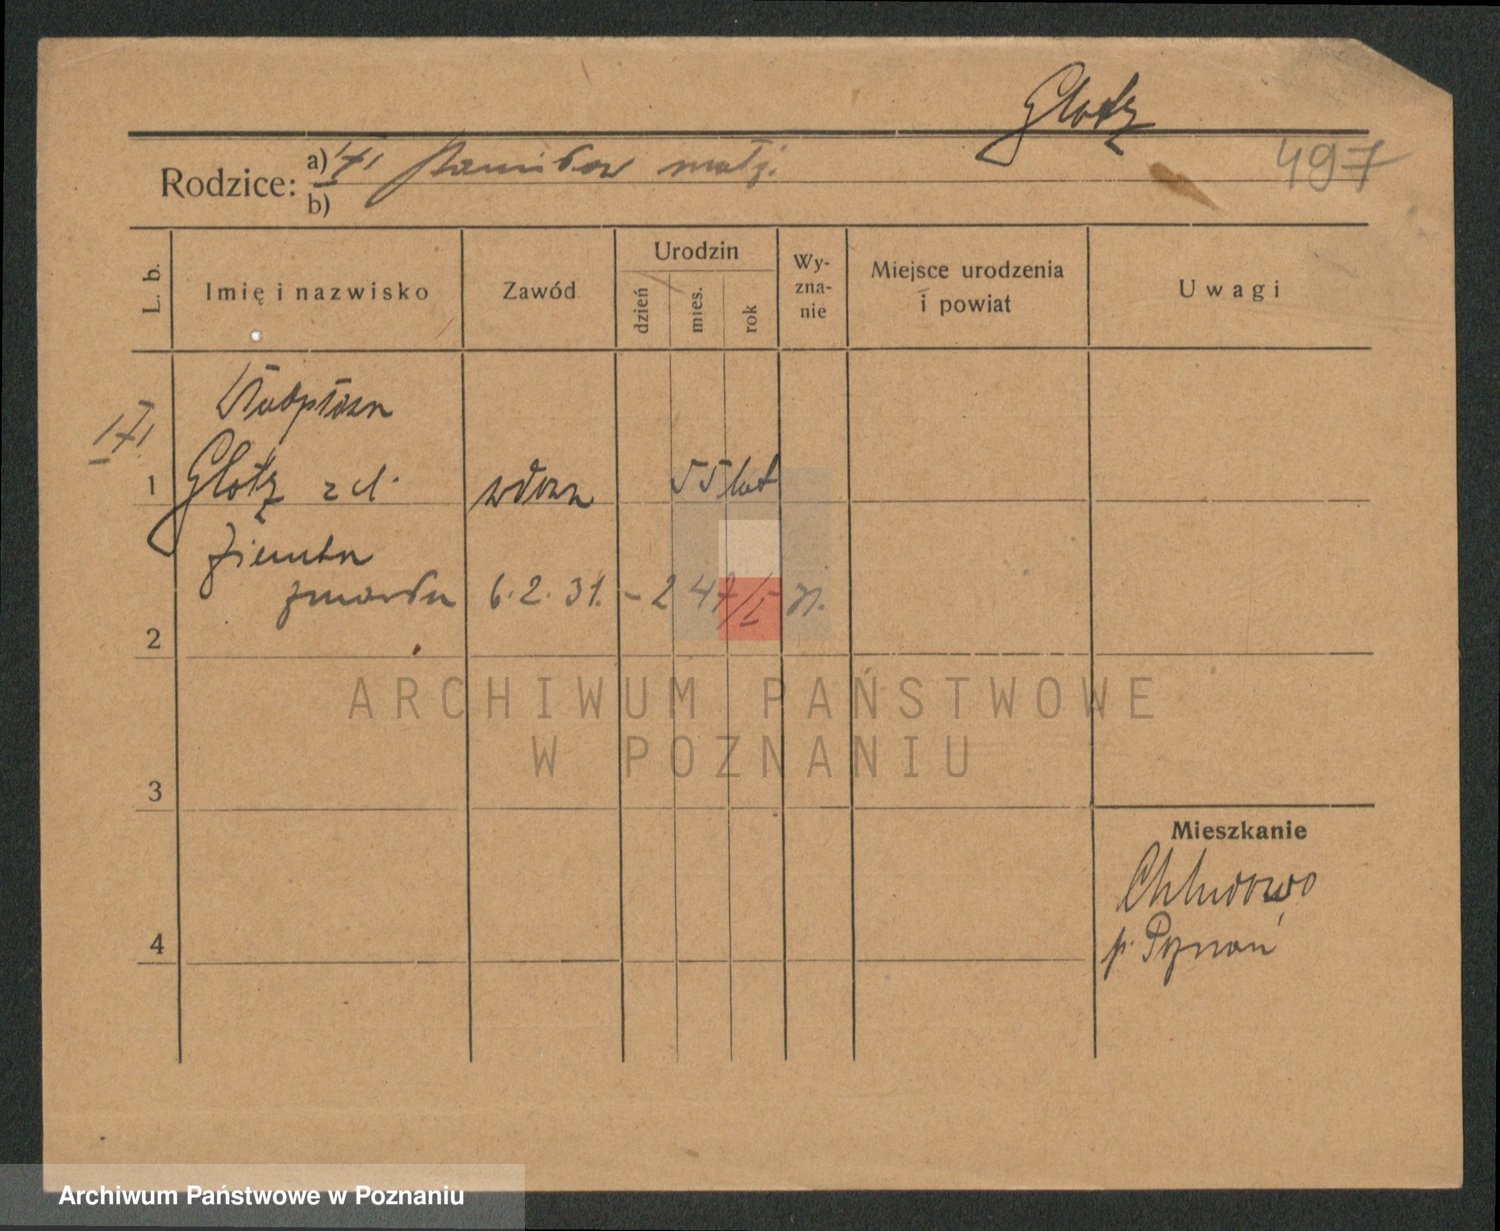 Glotz
497
Rodzice: a) Stanisław małż.
b)
L. b.
Imię i nazwisko
Zawód
Urodzin
dzień
mies.
rok
Wy-
zna-
nie
Miejsce urodzenia
i powiat
Uwagi
1 Glotz z d. wdowa 55 lat
Ziemba
zmarła 6.2.31. - 247/I
2
3
4
Mieszkanie
Chludowo
p. Poznań
ARCHIWUM PAŃSTWOWE
W POZNANIU
Archiwum Państwowe w Poznaniu